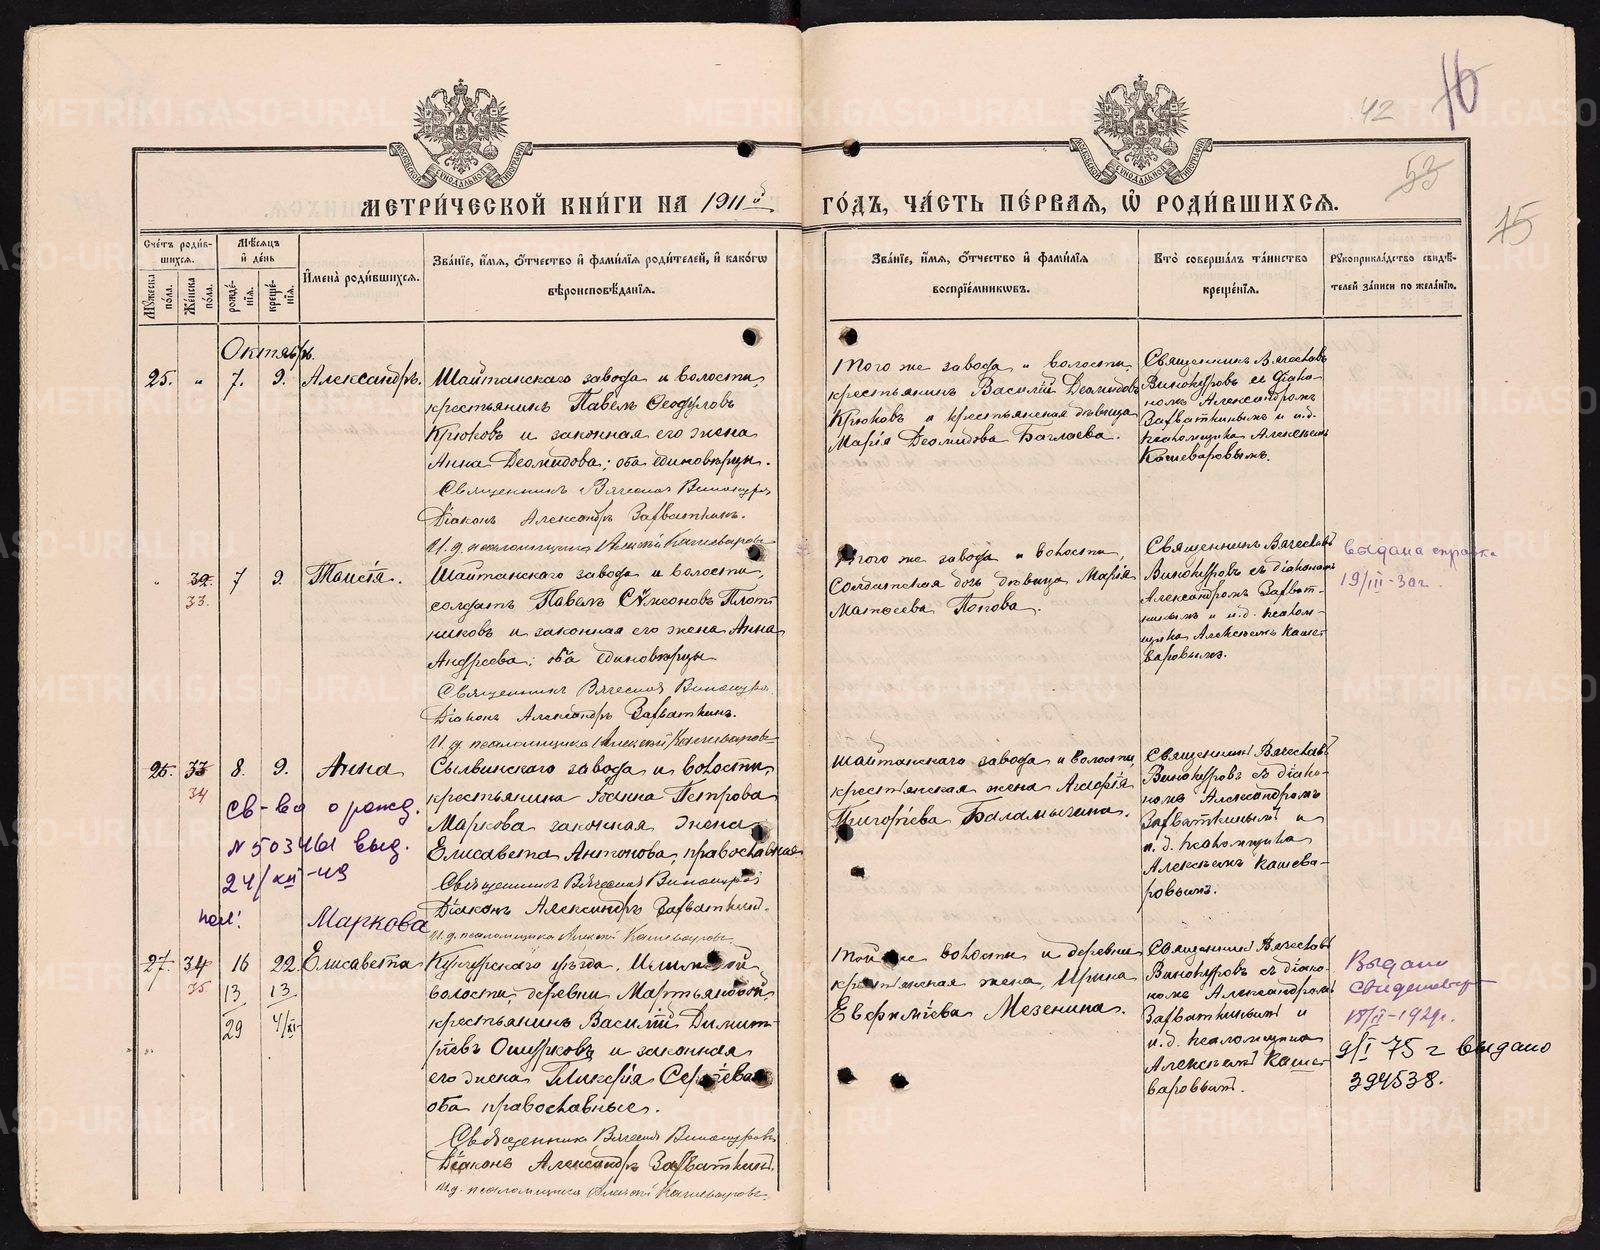 42
16
53
15
МЕТРИ́ЧЕСКОЙ КНИ́ГИ НА 1911й
ГО́ДЪ, ЧА́СТЬ ПЕ́РВАѦ, Ѡ҆ РОДИ́ВШИХСѦ.
Сче́тъ роди́в-
шихсѧ.
Мꙋ́жеска по́ла.
Же́нска по́ла.
Мѣ́сѧцъ
и҆ де́нь
рожде́-
нїѧ.
креще́-
нїѧ.
И҆мена̀ роди́вшихсѧ.
Зва́нїе, и҆́мѧ, ѻ҆́тчество и҆ фами́лїѧ роди́телей, и҆ како́гѡ
вѣроисповѣ́данїѧ.
Зва́нїе, и҆́мѧ, ѻ҆́тчество и҆ фами́лїѧ
воспрїе́мникѡвъ.
Кто̀ соверша́лъ та́инство
креще́нїѧ.
Рꙋкоприкла́дство свидѣ́-
телей за́писи по жела́нїю.
Октябрь
25. " 7. 9. Александръ.
Шайтанскаго завода и волости,
крестьянинъ Павелъ Ѳеофиловъ
Крюковъ и законная его жена
Анна Деомидова; оба единовѣрцы.
Священникъ Вячеславъ Винокуровъ
Діаконъ Александръ Завваткинъ.
И. д. псаломщика Алексѣй Кашеваровъ
Того же завода и волости,
крестьянинъ Василій Деомидовъ
Крюковъ и крестьянская дѣвица
Марія Деомидова Баглаева.
Священникъ Вячеславъ
Винокуровъ съ діако-
номъ Александромъ
Завваткинымъ и и.д.
псаломщика Алексѣемъ
Кашеваровымъ.
" 32. 33. 7 9. Таисія.
Шайтанскаго завода и волости,
солдатъ Павелъ Сѵмеоновъ Плот-
никовъ и законная его жена Анна
Андреева; оба единовѣрцы.
Священникъ Вячеславъ Винокуровъ
Діаконъ Александръ Завваткинъ.
И. д. псаломщика Алексѣй Кашеваровъ
Того же завода и волости,
солдатская дочь дѣвица Марія
Матѳеева Попова.
Священникъ Вячеславъ
Винокуровъ съ діакономъ
Александромъ Завват-
кинымъ и и.д. псалом-
щика Алексѣемъ Каше-
варовымъ.
выдана справка
19/III-30г.
26. 33 34 8. 9. Анна
Св-во о рожд.
№503461 выд.
24/XII-43
пол:
Маркова
Сылвинскаго завода и волости,
крестьянина Іоанна Петрова
Маркова законная жена
Елисавета Антонова, православная
Священникъ Вячеславъ Винокуровъ
Діаконъ Александръ Завваткинъ.
И. д. псаломщика Алексѣй Кашеваровъ.
Шайтанскаго завода и волости,
крестьянская жена Агафія
Григорьева Баламыгина.
Священникъ Вячеславъ
Винокуровъ съ діако-
номъ Александромъ
Завваткинымъ и
и. д. псаломщика
Алексѣемъ Кашева-
ровымъ.
27. 34 35 16 22. Елисавета
13 13
29 4/XI
Кунгурскаго уѣзда, Илимской
волости, деревни Мартьяновой,
крестьянинъ Василій Димит-
ріевъ Ошурковъ и законная
его жена Гликерія Сергѣева
оба православные.
Священникъ Вячеславъ Винокуровъ
Діаконъ Александръ Завваткинъ.
И.д. псаломщика Алексѣй Кашеваровъ.
Той же волости и деревни
крестьянская жена, Ирина
Евфиміева Мезенина.
Священникъ Вячеславъ
Винокуровъ съ діако-
номъ Александромъ
Завваткинымъ и
и.д. псаломщика
Алексѣемъ Каше-
варовымъ.
Выдано
9/I 75 г выдано
394538.